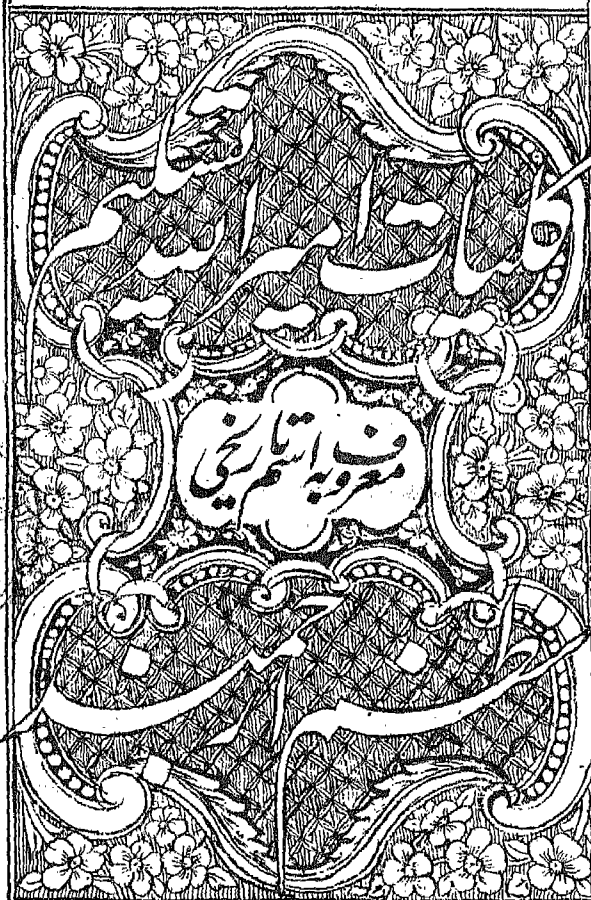 کلیات امیر اللہ تسلیم
معروف بہ اسم تاریخی
نظم ارجمند